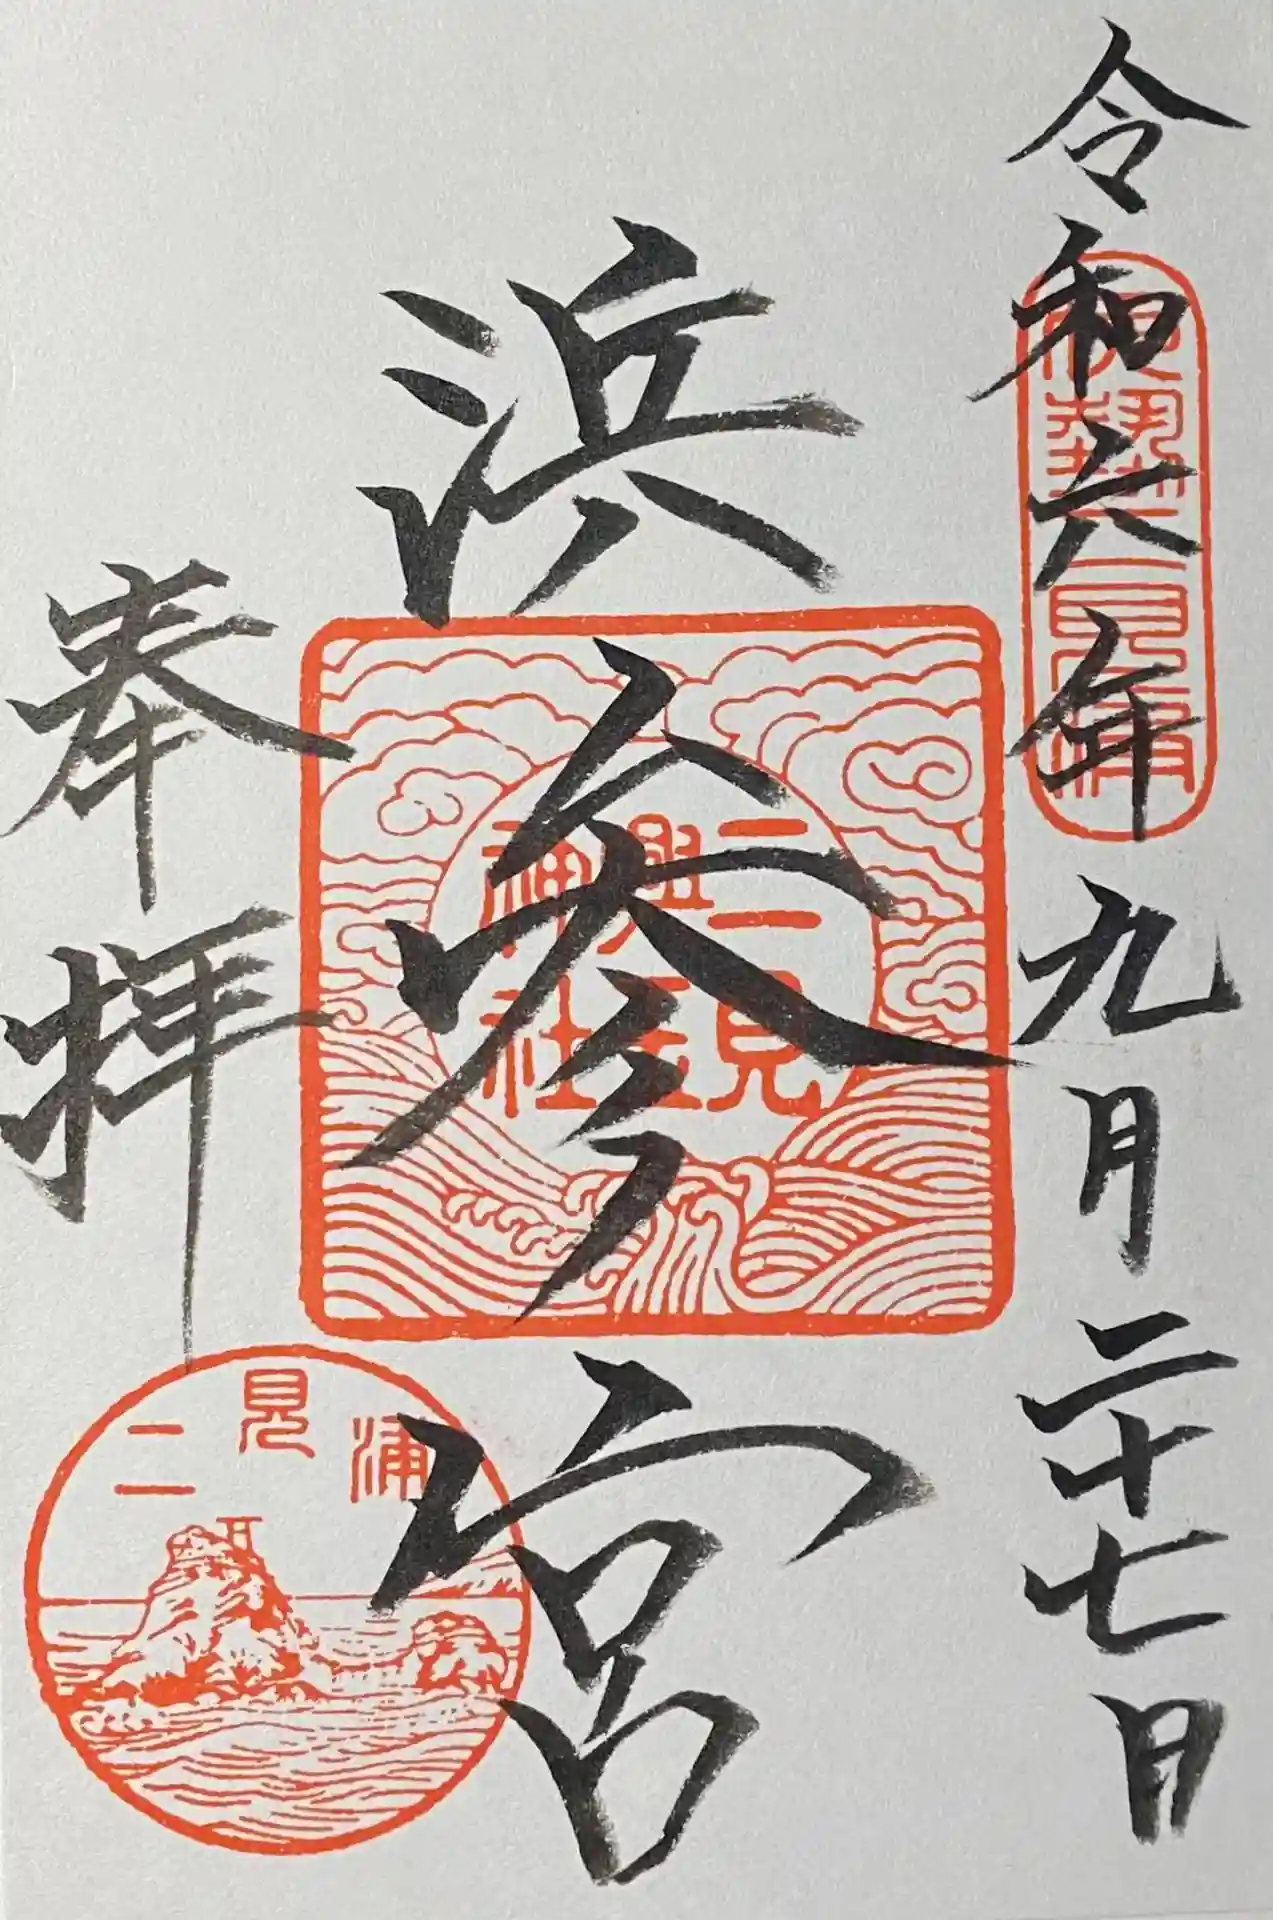 令和六年九月二十七日
伊勢二見浦
浜参宮
二見
興玉
神社
奉拝
二見浦